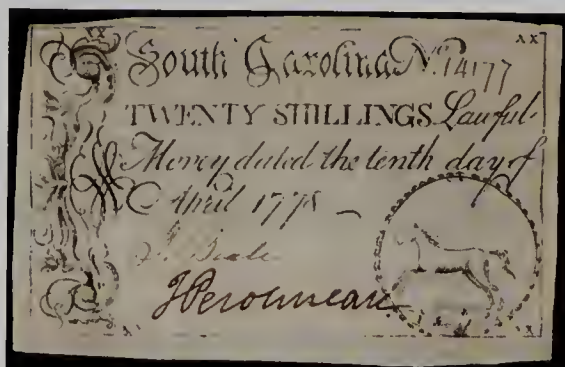 XX
XX
South Carolina No. 14177
TWENTY SHILLINGS Lawful
Money dated the tenth day of
April 1778
Beale
HPeronneau
X